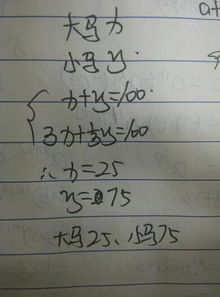 大马x
小马y.
x+y=100.
3x+⅓y=100
∴x=25
y=75
大马25、小马75